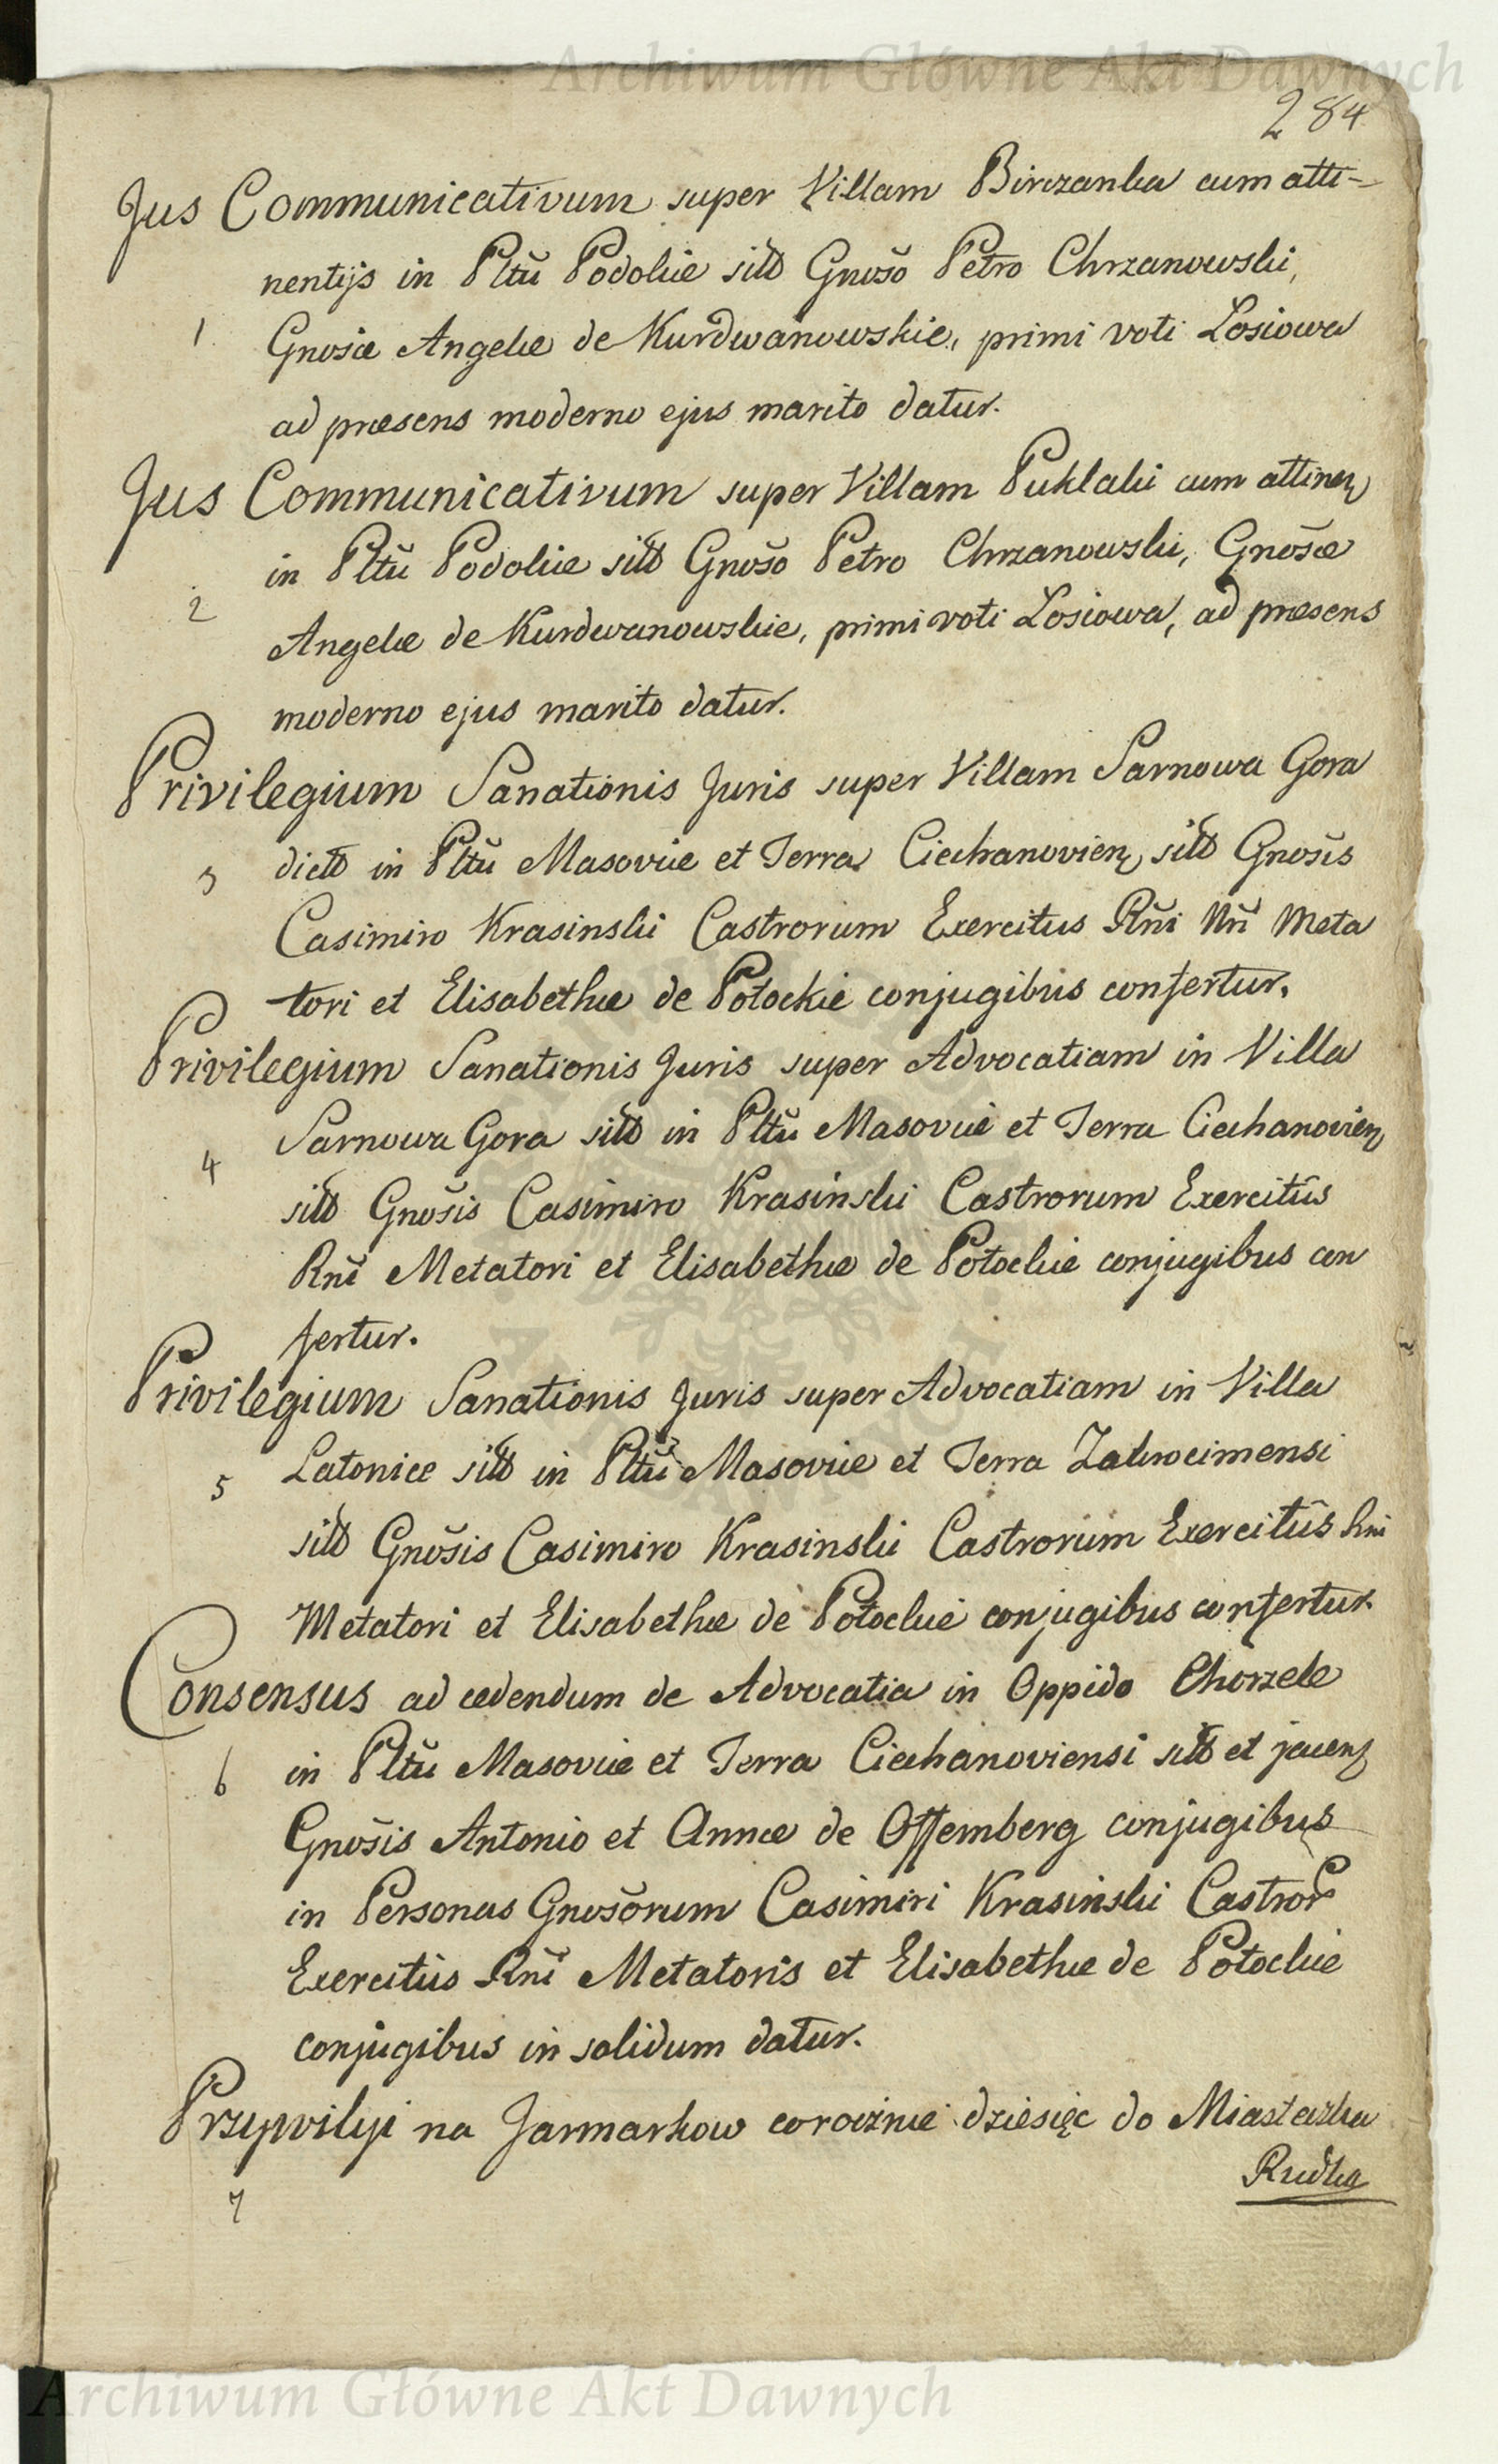 Archiwum Główne Akt Dawnych
284
Jus Communicativum super Villam Birczanka cum atti-
nentijs in Pltũ Podoliæ sitt Gnoso Petro Chrzanowski,
1 Gnosæ Angelæ de Kurdwanowskie, primi voti Losiowa
ad præsens moderno ejus marito datur.
Jus Communicativum super Villam Puklaki cum attinen
in Pltũ Podoliæ sitt Gnoso Petro Chrzanowski, Gnosæ
2 Angelæ de Kurdwanowskie, primi voti Losiowa, ad præsens
moderno ejus marito datur.
Privilegium Sanationis Juris super Villam Sarnowa Gora
3 dictt in Pltũ Masoviæ et Terra Ciechanovien sitt Gnosis
Casimiro Krasinski Castrorum Exercitus Rñi Nñ Meta
tori et Elisabethæ de Potockie conjugibus confertur.
Privilegium Sanationis Juris super Advocatiam in Villa
4 Sarnowa Gora sitt in Pltũ Masoviæ et Terra Ciechanovien
sitt Gnosis Casimiro Krasinski Castrorum Exercitûs
Rñi Metatori et Elisabethæ de Potockie conjugibus con
fertur.
Privilegium Sanationis Juris super Advocatiam in Villa
5 Latonice sitt in Pltũ Masoviæ et Terra Zakrocimensi
sitt Gnosis Casimiro Krasinski Castrorum Exercitûs Rni
Metatori et Elisabethæ de Potockie conjugibus confertur.
Consensus ad cedendum de Advocatia in Oppido Chorzele
6 in Pltũ Masoviæ et Terra Ciechanoviensi sitt et jacen
Gnosis Antonio et Annæ de Offemberg conjugibus
in Personas Gnosorum Casimiri Krasinski Castror
Exercitus Rñi Metatoris et Elisabethæ de Potockie
conjugibus in solidum datur.
Przywilyi na Jarmarkow corocznie dziesięc do Miasteczka
Rudka
7
Archiwum Główne Akt Dawnych